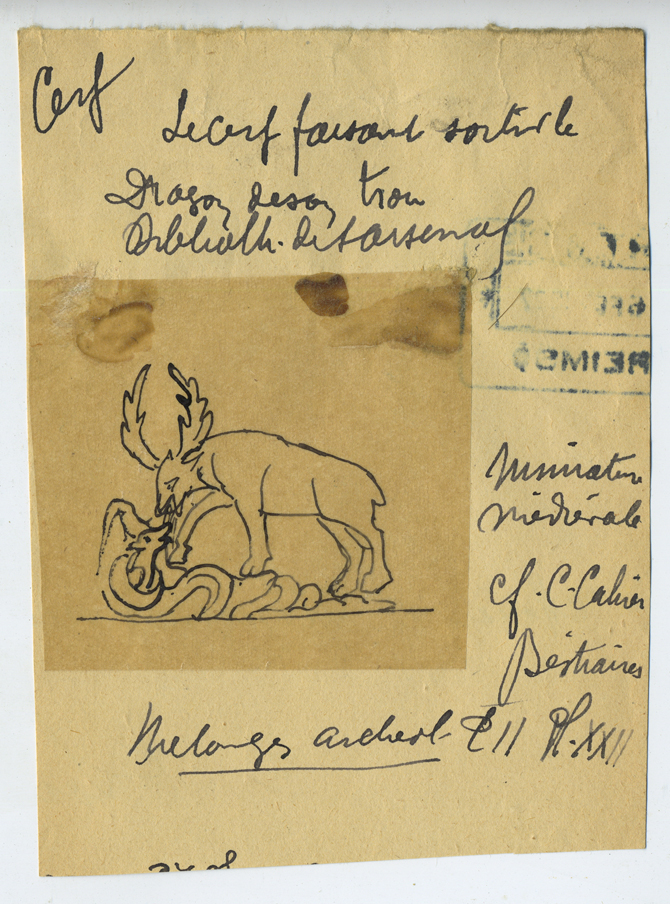 Cerf
Le cerf faisant sortir le
Dragon de son trou
Biblioth. de l'arsenal
REIMS
Miniature
Médiévale
cf. C. Cahier
Bestiaires
Melanges archeol. T II Pl. XXII